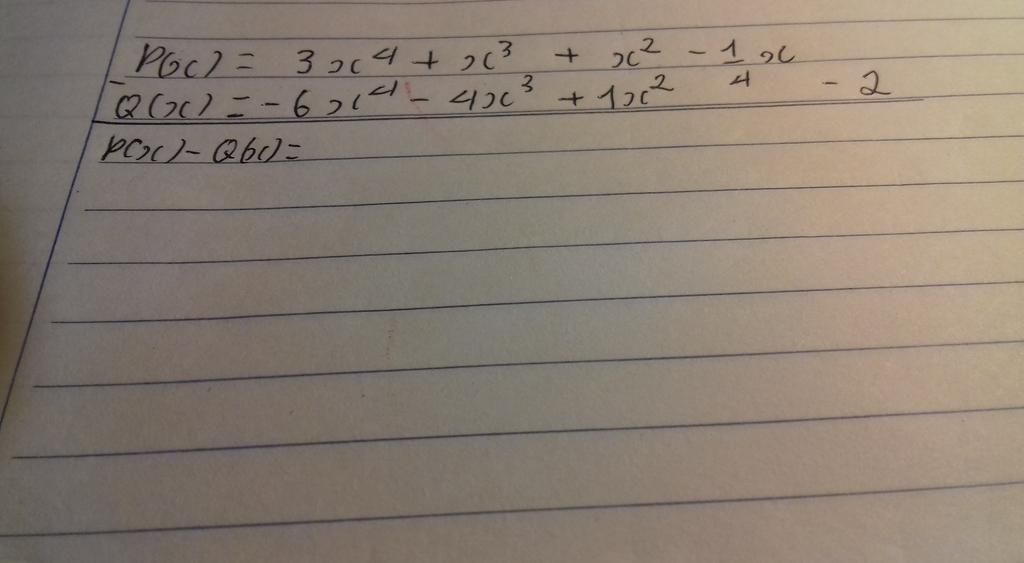 P(x) = 3x⁴ + x³ + x² - 1/4 x
- Q(x) = - 6x⁴ - 4x³ + 1x² - 2
P(x) - Q(x) =